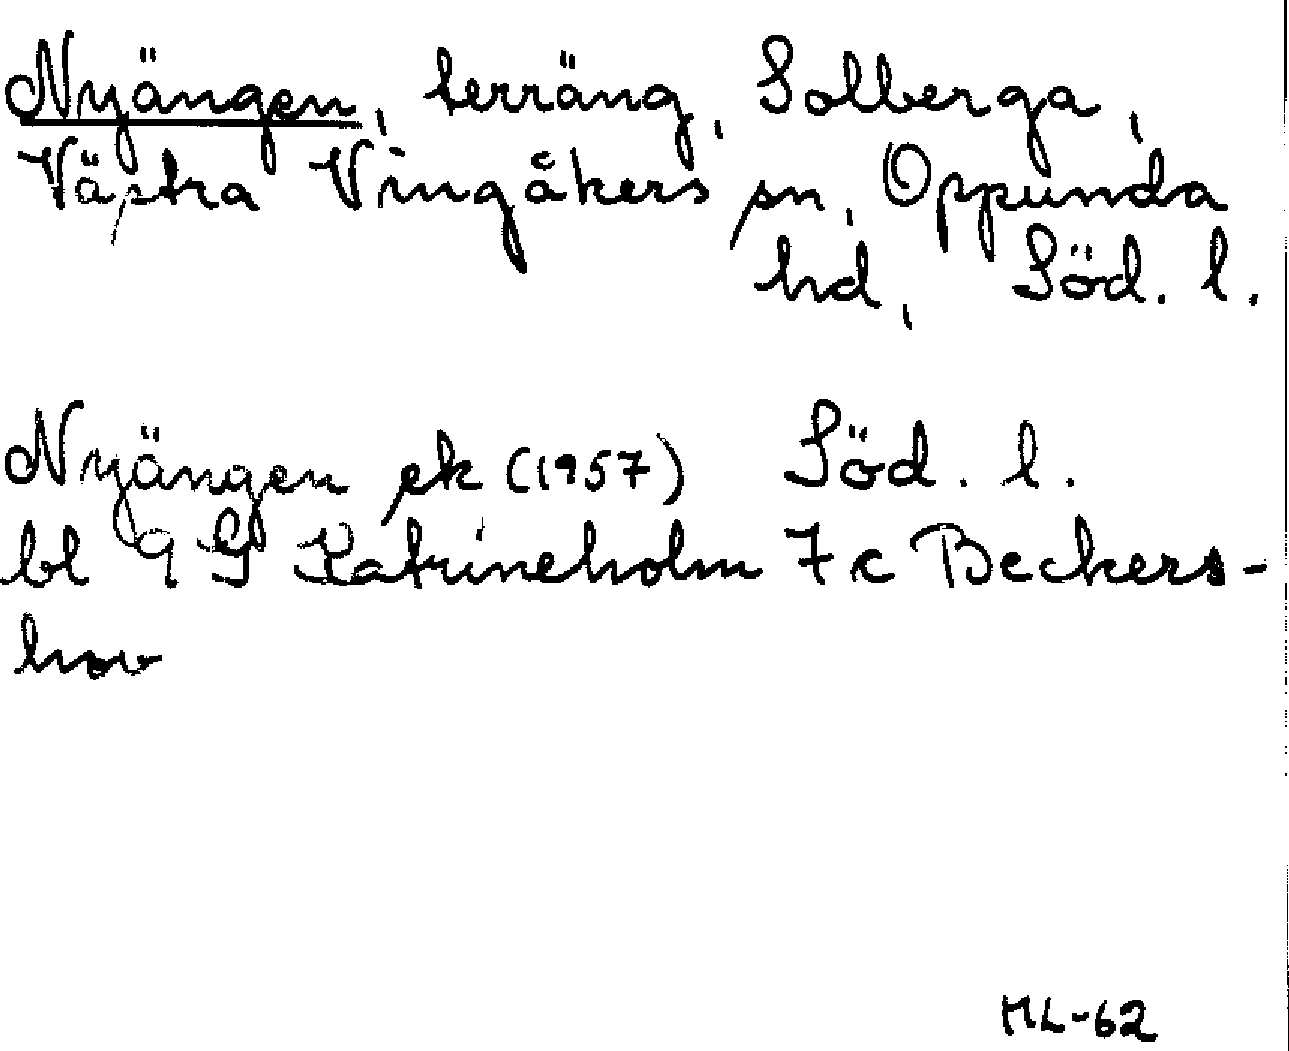 Nyängen, terräng, Solberga,
Västra Vingåkers sn, Oppunda
hd, Söd. l.
Nyängen ek (1957) Söd. l.
bl 9 G Katrineholm 7 c Beckers-
hov
ML-62